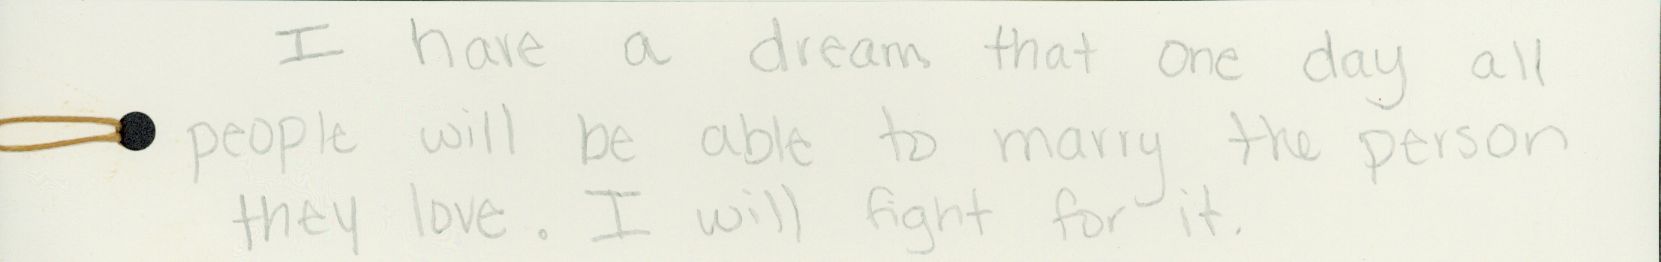 I have a dream that one day all
people will be able to marry the person
they love. I will fight for it.